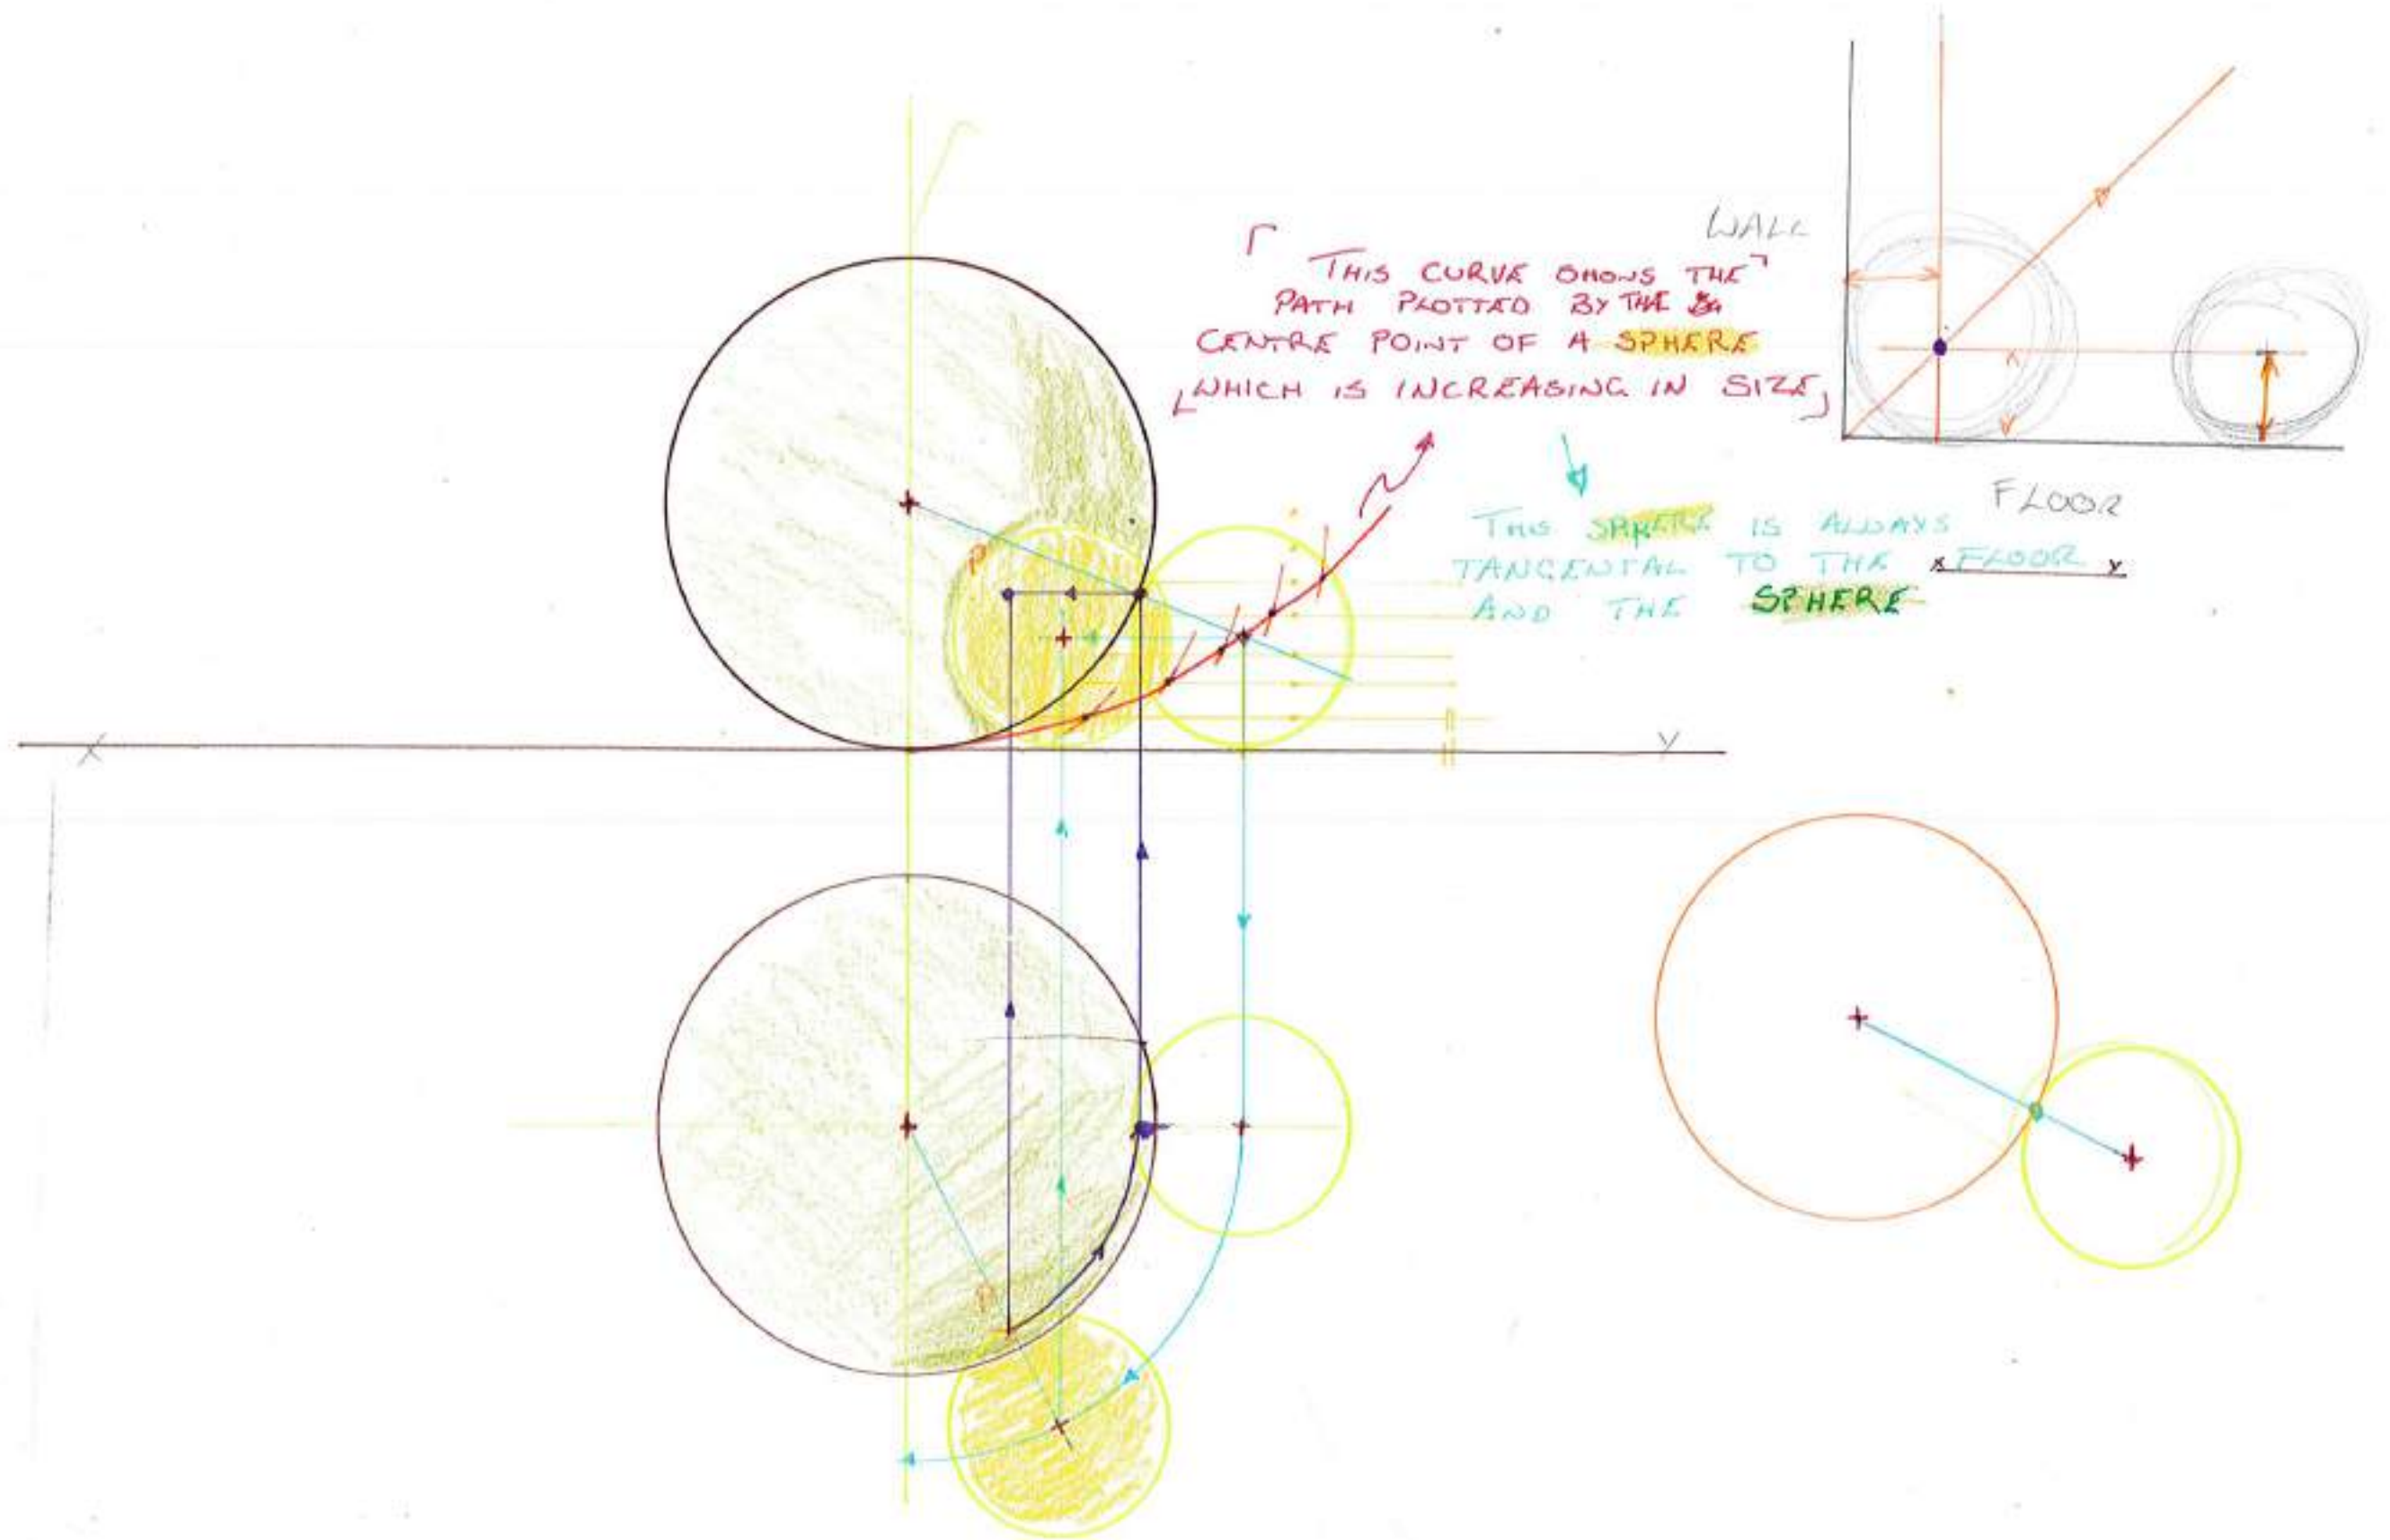 WALL
THIS CURVE SHOWS THE
PATH PLOTTED BY THE
CENTRE POINT OF A SPHERE
WHICH IS INCREASING IN SIZE
FLOOR
THIS SPHERE IS ALWAYS
TANGENTAL TO THE X FLOOR Y
AND THE SPHERE
P
X
Y
P